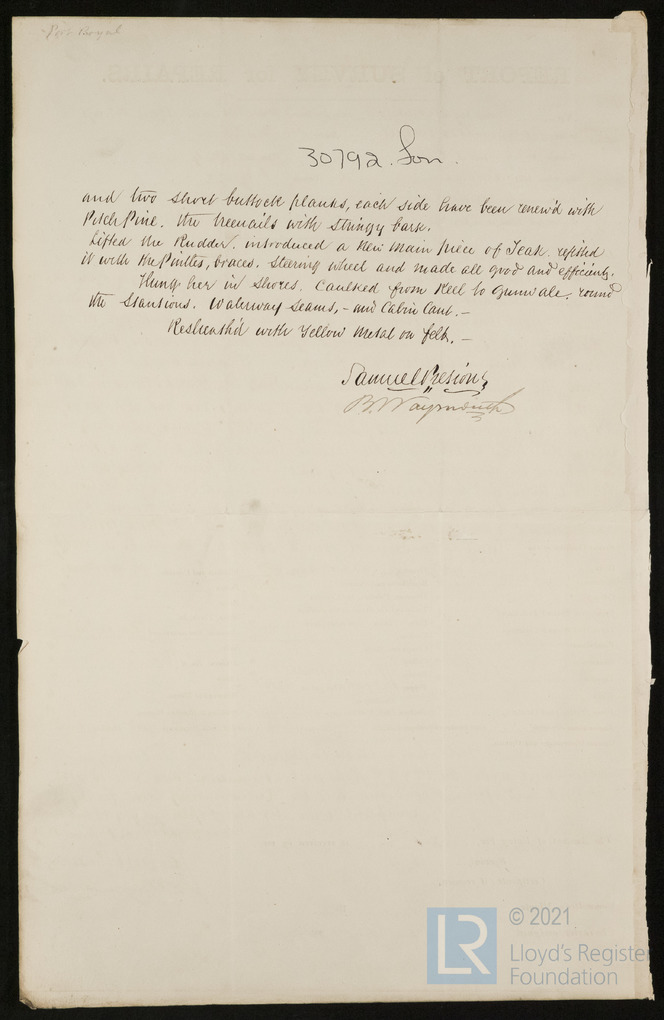 Port Royal
REPORT of SURVEY for REPAIRS.
30792. Lon.
and two short buttock planks, each side have been renew'd with
Pitch Pine. the treenails with Stringy bark.
Lifted the Rudder. introduced a New Main piece of Teak. refitted
it with the Pintles, braces. Steering wheel and made all good and efficient.
Hung her in Shores. Caulked from Keel to Gunwale. round
the Stantions. Waterway seams, - and Cabin Cant. -
Resheath'd with Yellow Metal on felt. -
Samuel Preston
B. Waymouth
LR
© 2021
Lloyd's Register
Foundation